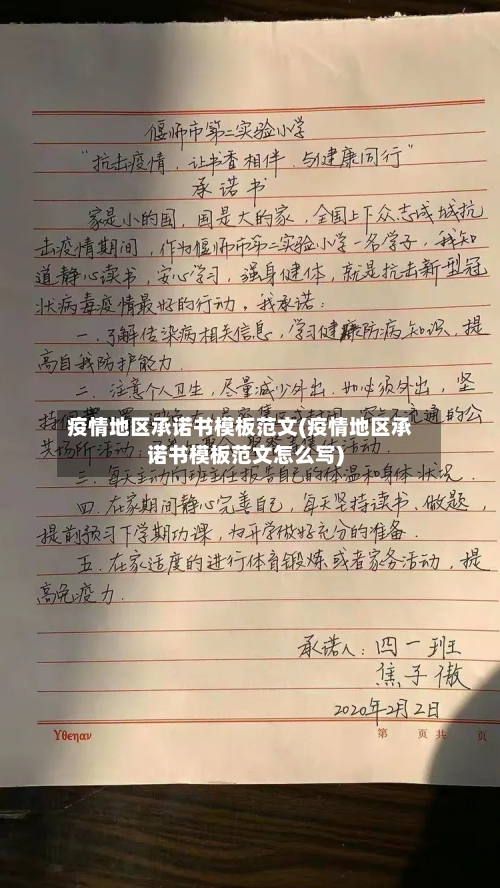 偃师市第二实验小学
“抗击疫情,让书香相伴,与健康同行”
承诺书
家是小的国,国是大的家,全国上下众志成城抗
击疫情期间,作为偃师市第二实验小学一名学子,我知
道静心读书,安心学习,强身健体,就是抗击新型冠
状病毒疫情最好的行动,我承诺:
一.了解传染病相关信息,学习健康防病知识,提
高自我防护能力.
二.注意个人卫生,尽量减少外出.如必须外出,坚
持 流通的公
共场所活动
疫情地区承诺书模板范文(疫情地区承
诺书模板范文怎么写)
三.每天主动向班主任报告自己的体温和身体状况.
四.在家期间静心完善自己,每天坚持读书、做题,
提前预习下学期功课,为开学做好充分的准备.
五.在家适度的进行体育锻炼或者家务活动,提
高免疫力.
承诺人:四一班
焦子傲
2020年2月2日
Yθeηαν
第 页 共 页